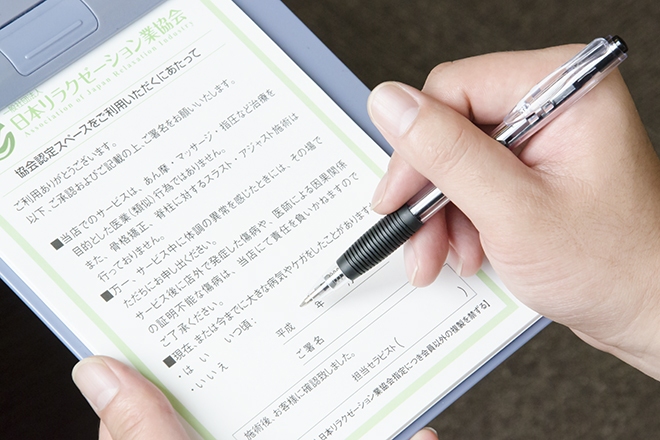 日本リラクゼーション業協会
Association of Japan Relaxation Industry
協会認定スペースをご利用いただくにあたって
ご利用ありがとうございます。
以下、ご承認およびご記載の上、ご署名をお願いいたします。
■当店でのサービスは、あん摩・マッサージ・指圧など治療を
目的とした医業(類似)行為ではありません。
また、骨格矯正、脊柱に対するスラスト・アジャスト施術は
行っておりません。
■万一、サービス中に体調の異常を感じたときには、その場で
ただちにお申し出ください。
サービス後に店外で発症した傷病や、医師による因果関係
の証明不能な傷病は、当店にて責任を負いかねますので
ご了承ください。
■現在、または今までに大きな病気やケガをしたことがあります
・はい いつ頃:
・いいえ
平成 年
ご署名
施術後、お客様に確認致しました。
担当セラピスト(
日本リラクゼーション業協会指定につき会員以外の複製を禁ずる】